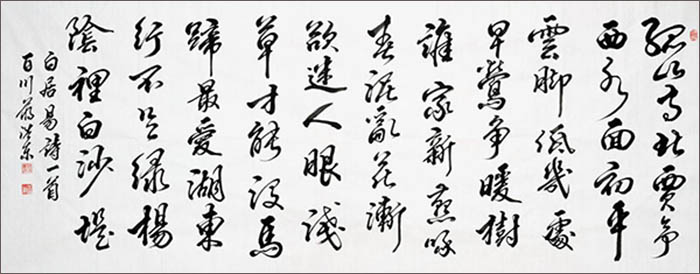 孤山寺北賈亭
西水面初平
雲脚低幾處
早鶯争暖樹
誰家新燕啄
春泥亂花漸
欲迷人眼淺
草才能沒馬
蹄最愛湖東
行不足绿楊
陰裡白沙堤
白居易詩一首
百川